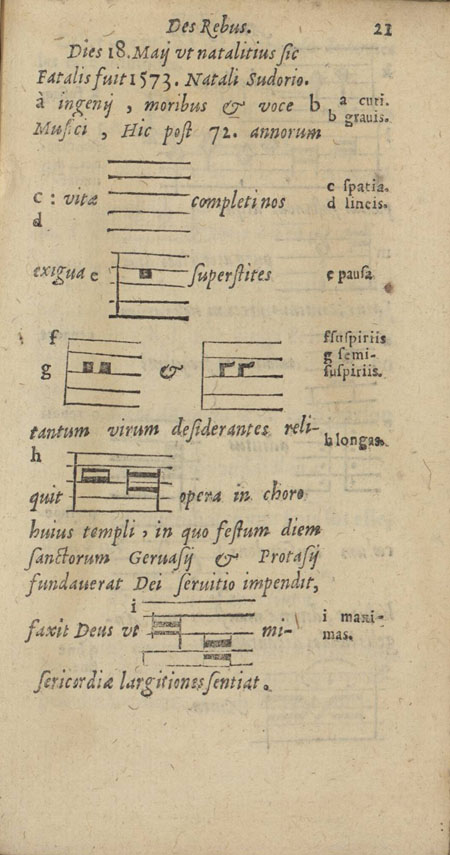 Des Rebus. 21
Dies 18. Maij vt natalitius sic
Fatalis fuit 1573. Natali Sudorio.
à ingenij, moribus & voce b a cuti.
b grauis.
Musici, Hic post 72. annorum
c : vitæ completi nos c spatia.
d d lineis.
exigua e superstites e pausa
f fsuspiriis
g & g semi-
suspiriis.
tantum virum desiderantes reli-
h h longas.
quit opera in choro
huius templi, in quo festum diem
sanctorum Geruasij & Protasij
fundauerat Dei seruitio impendit,
i
faxit Deus vt mi- i maxi-
mas.
sericordiæ largitiones sentiat.